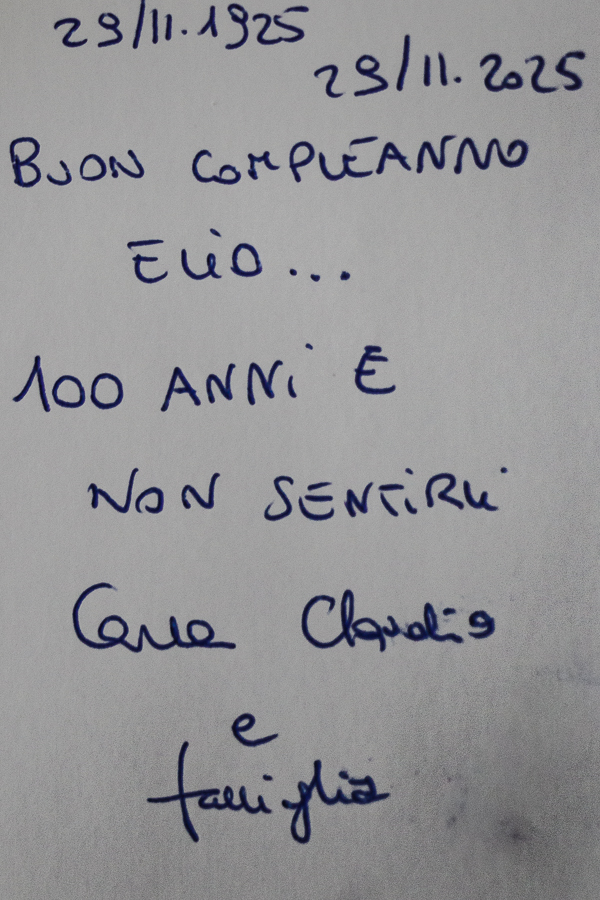 29/11.1925
29/11.2025
BUON COMPLEANNO
ELIO...
100 ANNI E
NON SENTIRLI
Carla Claudio
e
famiglia